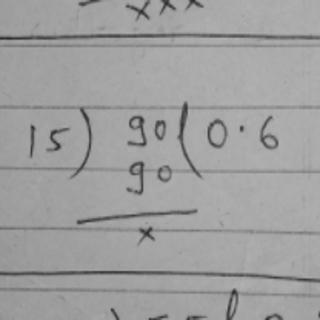 xxx
15) 90 ( 0.6
90
x